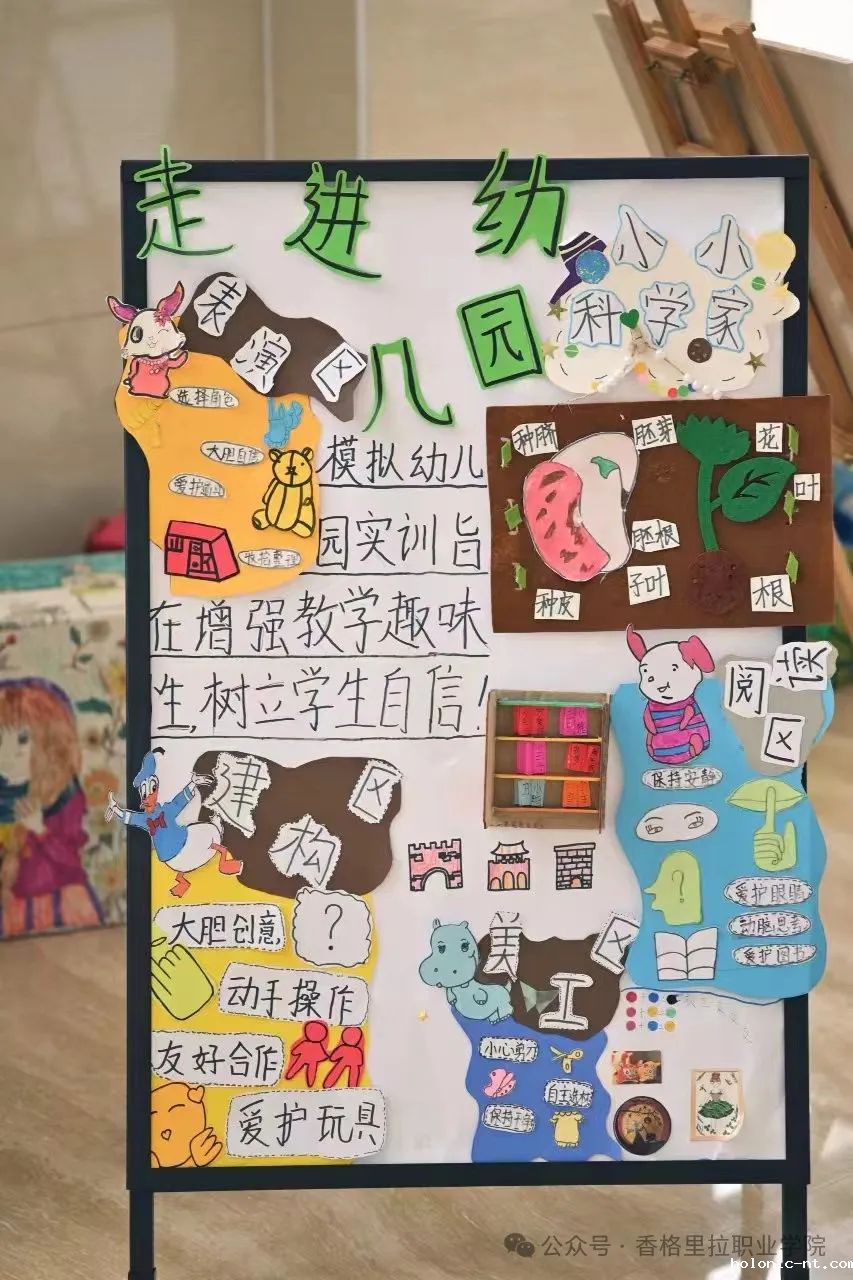 走进幼
儿园
小小
科学家
表演区
选择角色
大胆自信
爱护道具
收拾整理
模拟幼儿
园实训旨
在增强教学趣味
性,树立学生自信!
种脐
胚芽
花
叶
胚根
子叶
种皮
根
阅读
区
保持安静
?
爱护眼睛
动脑思考
爱护图书
建构区
大胆创意
?
动手操作
友好合作
爱护玩具
美工区
小心剪刀
保持干净
公众号 · 香格里拉职业学院
holonic-nt.com